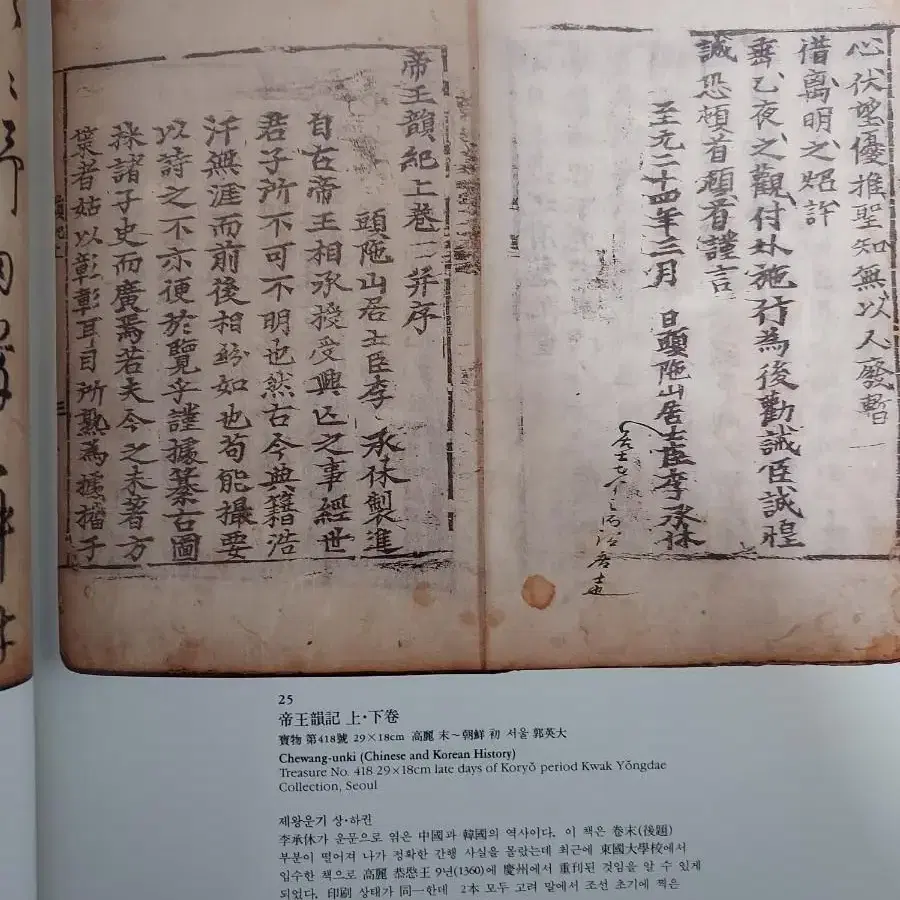 心伏望優推聖知無以人廢暫
借离明之炤許
垂乙夜之觀付外施行為後勸誡臣誠惶
誠恐頓首頓首謹言
至元二十四年三月 日頭陁山居士臣李承休
帝王韻紀上卷一并序
頭陁山居士臣李 承休製進
自古帝王相承授受興亡之事經世
君子所不可不明也然古今典籍浩
汗無涯而前後相紛如也苟能撮要
以詩之不亦便於覽乎謹據纂古圖
採諸子史而廣焉若夫今之未著方
策者姑以彰彰耳目所熟為據播于
25
帝王韻記 上·下卷
寶物 第418號 29×18cm 高麗 末~朝鮮 初 서울 郭英大
Chewang-unki (Chinese and Korean History)
Treasure No. 418 29×18cm late days of Koryŏ period Kwak Yŏngdae
Collection, Seoul
제왕운기 상·하권
李承休가 운문으로 엮은 中國과 韓國의 역사이다. 이 책은 卷末(後題)
부분이 떨어져 나가 정확한 간행 사실을 몰랐는데 최근에 東國大學校에서
입수한 책으로 高麗 恭愍王 9년(1360)에 慶州에서 重刊된 것임을 알 수 있게
되었다. 印刷 상태가 同一한데 2本 모두 고려 말에서 조선 초기에 찍은